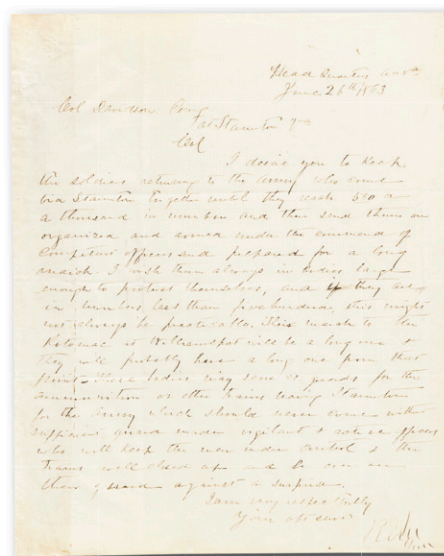 Head Quarters
June 26th 1863
Col Davidson Comg
at Staunton
Col
I desire you to keep
the soldiers returning to the Army who come
via Staunton together until they reach 500 or
a thousand in number and then send them on
organized and armed under the command of
Competent officers and prepared for a long
march. I wish them always in bodies large
enough to protect themselves, and if they are
in numbers less than five hundred, this might
not always be practicable. Their march to the
Potomac at Williamsport will be a long one &
they will probably have a long one from that
point. These bodies may serve as guards for the
ammunition or other trains leaving Staunton
for the Army which should never come without
sufficient guard under vigilant & active officers
who will keep the men under control & the
trains well closed up and be ever on
their guard against a surprise.
I am very respectfully
Your obt servt
R E Lee